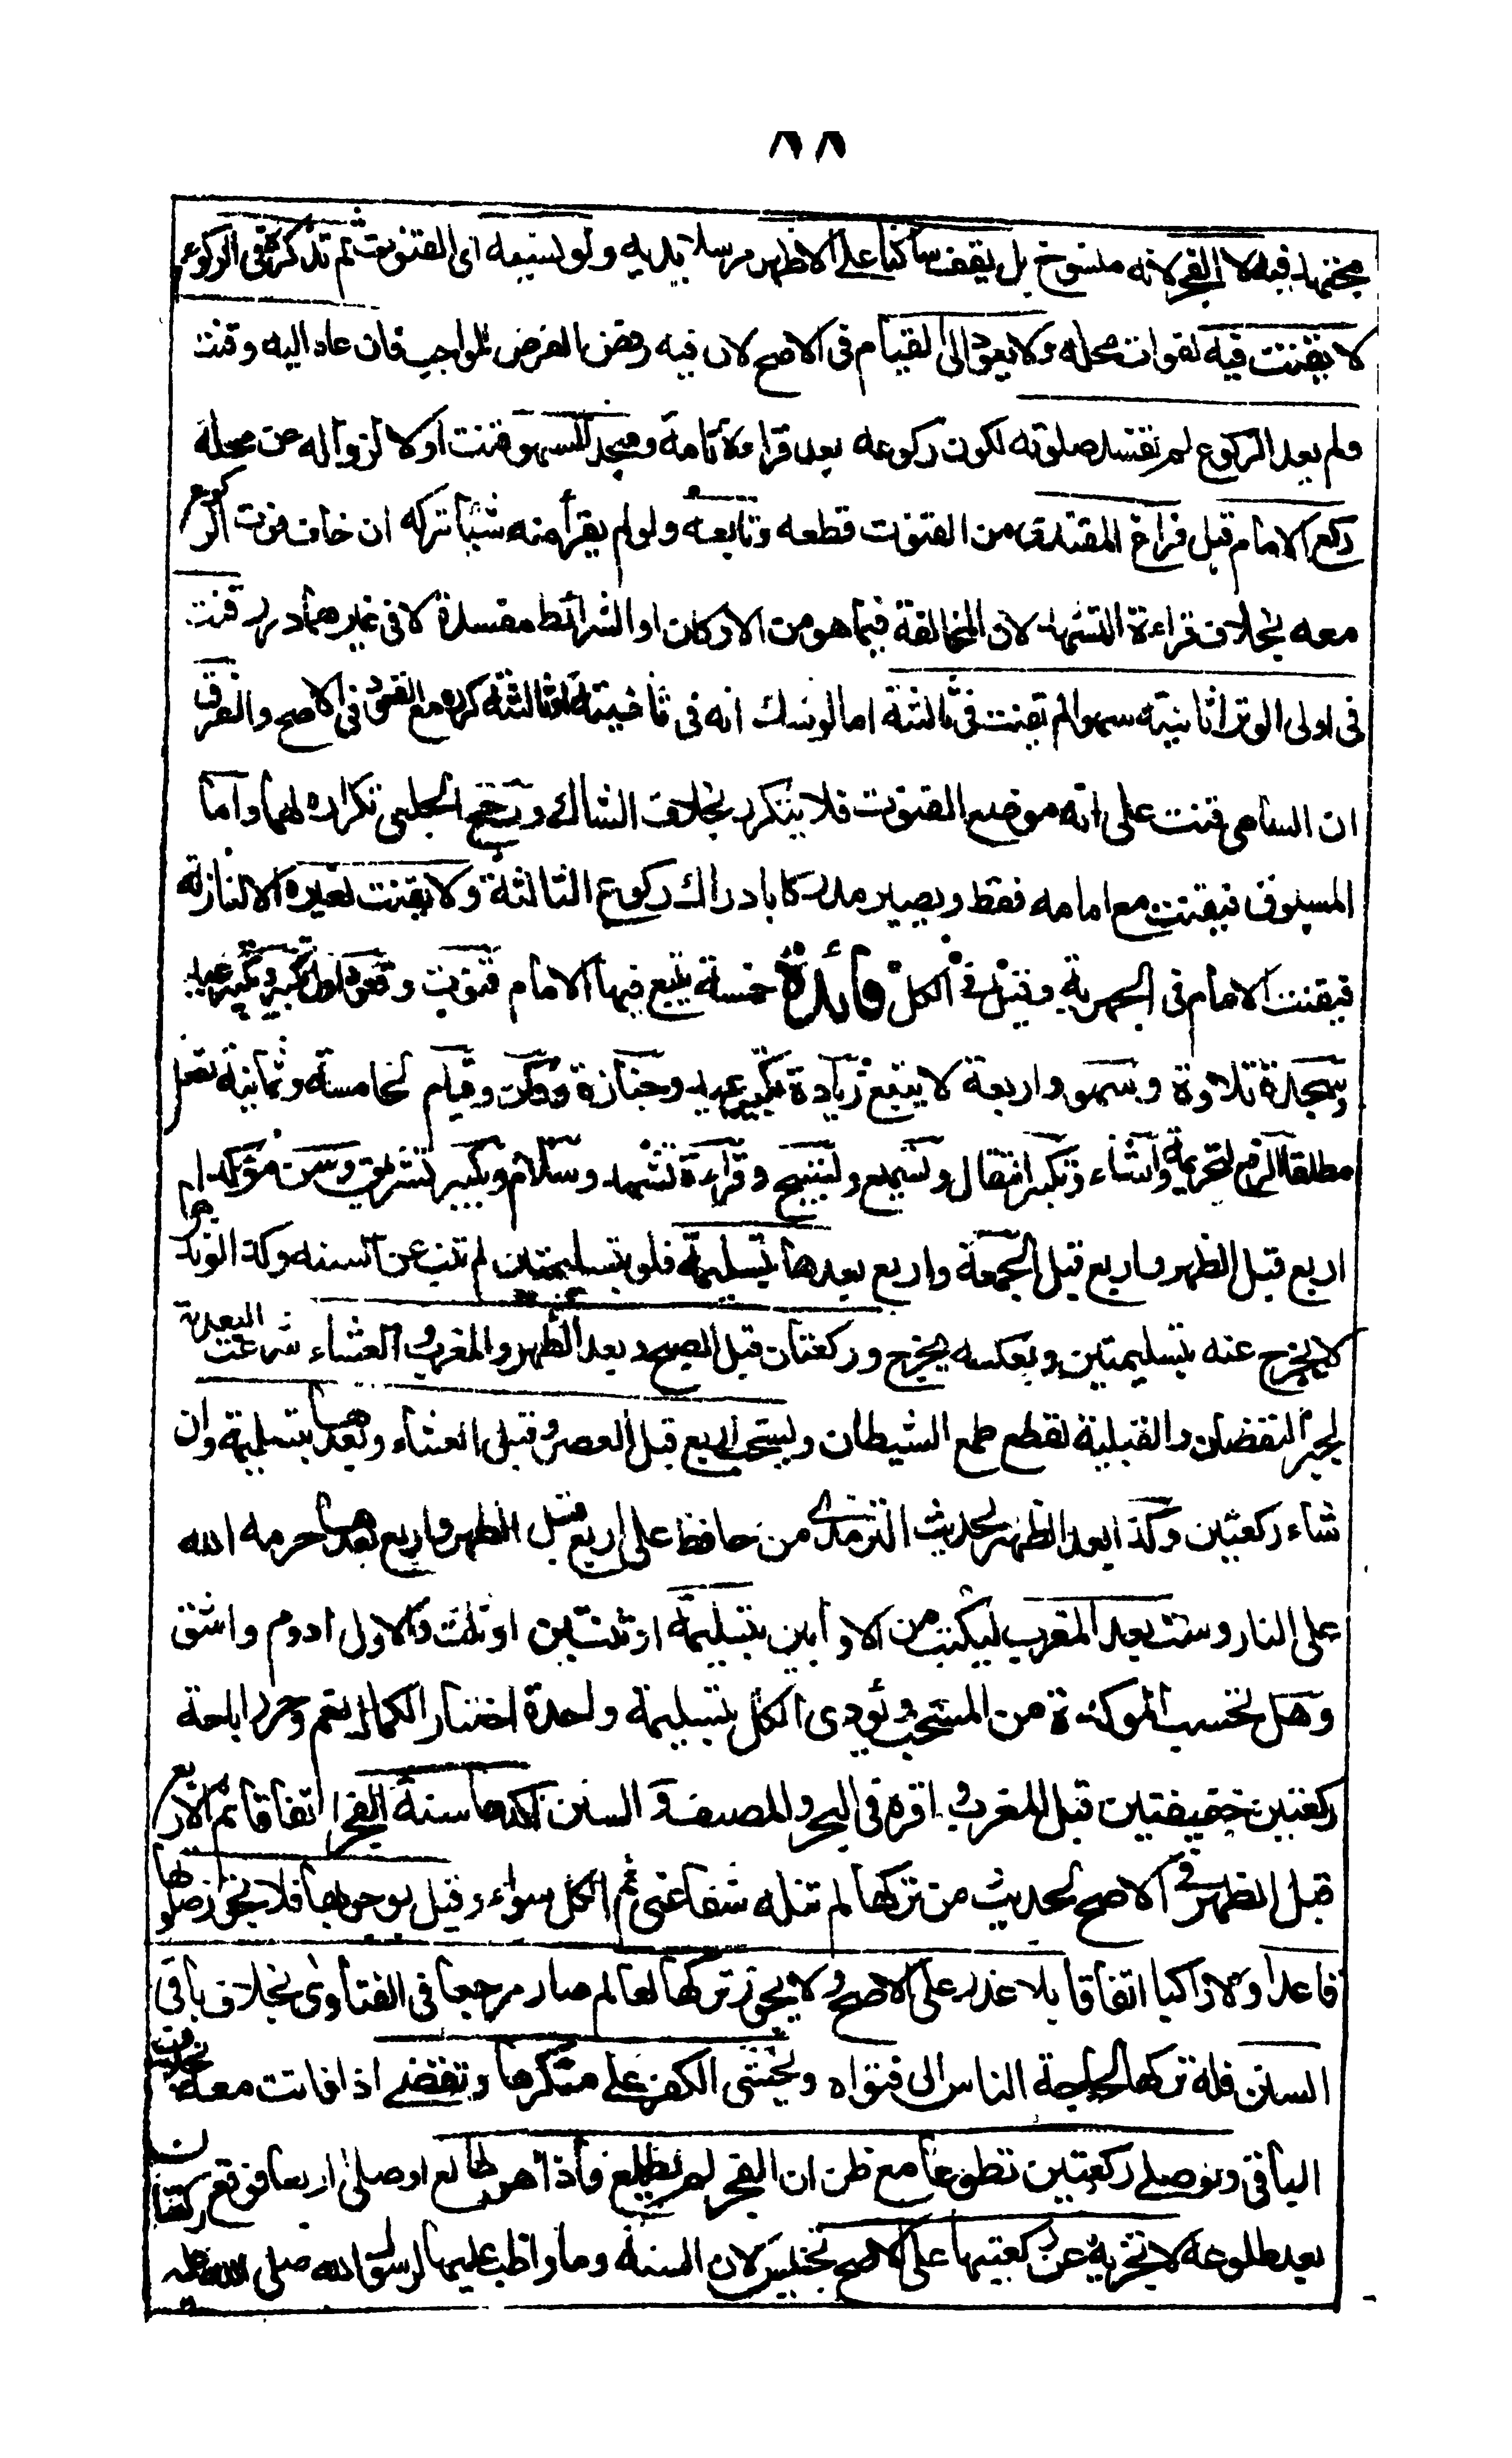 ٨٨
مجتهد فيه لا الفجر لانه منسوخ بل يقف ساكتا على الاظهر مرسلا يديه ولو نسيه اى القنوت ثم تذكره فى الركوع
لا يقنت فيه لفوات محله ولا يعود الى القيام فى الاصح لان فيه رفض الفرض للواجب فان عاد اليه وقنت
ولم يعد الركوع لم تفسد صلوته لكون ركوعه بعد قراءة تامة وسجد للسهو قنت اولا لزواله عن محله
ركع الامام قبل فراغ المقتدى من القنوت قطعه وتابعه ولو لم يقرأ منه شيئا تركه ان خاف فوت الركوع
معه بخلاف قراءة التشهد لان المخالفة فيما هو من الاركان او الشرائط مفسدة لا فى غيرها درر قنت
فى اولى الوتر او ثانيته سهوا لم يقنت فى ثالثة اما لو شك انه فى ثانيته او ثالثته كرره مع القعود فى الاصح والفرق
ان الساهى قنت على انه موضع القنوت فلا يتكرر بخلاف الشاك ورجح الحلبى تكراره لهما واما
المسبوق فيقنت مع امامه فقط ويصير مدركا بادراك ركوع الثالثة ولا يقنت لغيره الا لنازلة
فيقنت الامام فى الجهرية وقيل فى الكل فائدة خمسة يتبع فيها الامام قنوت وقعود اول وتكبير عيد
وسجدة تلاوة وسهو واربعة لا يتبع زيادة تكبير عيد وجنازة وركن وقيام لخامسة وثمانية تفعل
مطلقا الرفع لتحريمة والثناء وتكبير انتقال وتسميع وتسبيح وقراءة تشهد وسلام وتكبير تشريق وسن مؤكدا
اربع قبل الظهر واربع قبل الجمعة واربع بعدها بتسليمة فلو بتسليمتين لم تنب عن السنة وكذا لو نذرها
لا يخرج عنه بتسليمتين وبعكسه يخرج وركعتان قبل الصبح وبعد الظهر والمغرب والعشاء شرعت البعدية
لجبر النقصان والقبلية لقطع طمع الشيطان ويستحب اربع قبل العصر وقبل العشاء وبعدها بتسليمة وان
شاء ركعتين وكذا بعد الظهر لحديث الترمذى من حافظ على اربع قبل الظهر واربع بعدها حرمه الله
على النار وست بعد المغرب ليكتب من الاوابين بتسليمة او ثنتين او ثلث والاول ادوم واشق
وهل تحسب المؤكدة من المستحب ويؤدى الكل بتسليمة واحدة اختار الكمال نعم وحرر اباحة
ركعتين خفيفتين قبل المغرب واقره فى البحر والمصنف و السنن اكدها سنة الفجر اتفاقا ثم الاربع
قبل الظهر فى الاصح لحديث من تركها لم تنله شفاعتى ثم الكل سواء وقيل بوجوبها فلا تجوز صلوتها
قاعدا ولا راكبا اتفاقا بلا عذر على الاصح ولا يجوز تركها لعالم صار مرجعا فى الفتاوى بخلاف باقى
السنن فله تركها لحاجة الناس الى فتواه ويخشى الكفر على منكرها وتقضى اذا فاتت معه بخلاف
الباقى ولو صلى ركعتين تطوعا مع ظن ان الفجر لم يطلع فاذا هو طالع او صلى اربعا فوقع ركعتان
بعد طلوعه لا تجزيه عن ركعتيها على الاصح تجنيس لان السنة وما واظب عليها الرسول الله صلى الله عليه